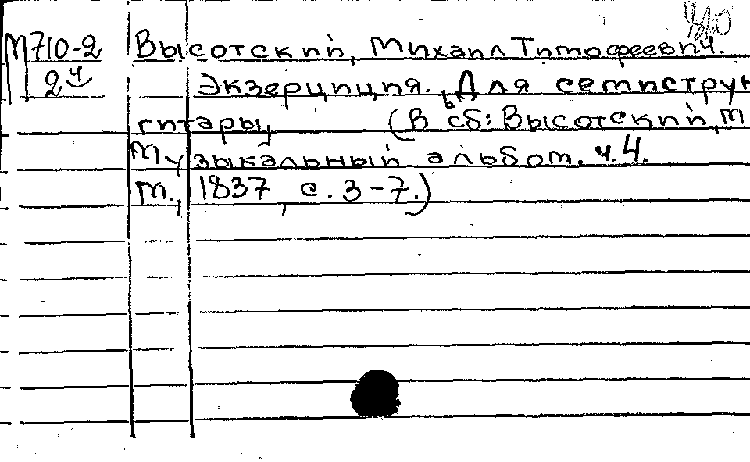 М710-2
2ч
Высотский, Михаил Тимофеевич.
Экзерциция. Для семиструн
гитары (В сб: Высотский, М
Музыкальный альбом. ч.4.
М., 1837, с. 3-7.)